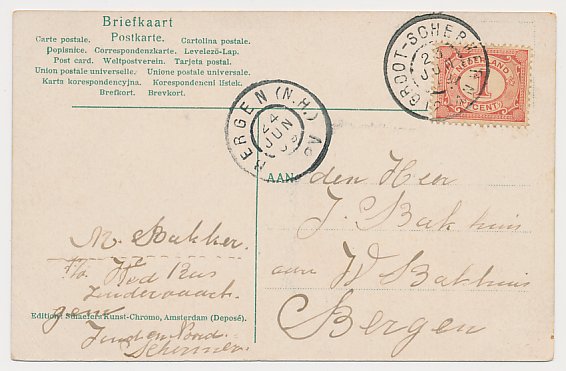 Briefkaart
Carte postale. Postkarte. Cartolina postale.
Dopisnice. Correspondenzkarte. Levelező-Lap.
Post card. Weltpostverein. Tarjeta postal.
Union postale universelle. Unione postale universale.
Karta korespondencyjna. Korespondencni listek.
Brefkort. Brevkort.
GROOT-SCHERMER
23 JUN
NEDERLAND
CENT
BERGEN (N.H.)
24 JUN
AAN
den Heer
J. Bakhuis
aan W Bakhuis
Bergen
M. Bakker.
p/a Wed Kus
Zuidervaart
Edition: Schaefers Kunst-Chromo, Amsterdam (Deposé).
Zuid en Noord
Schermer